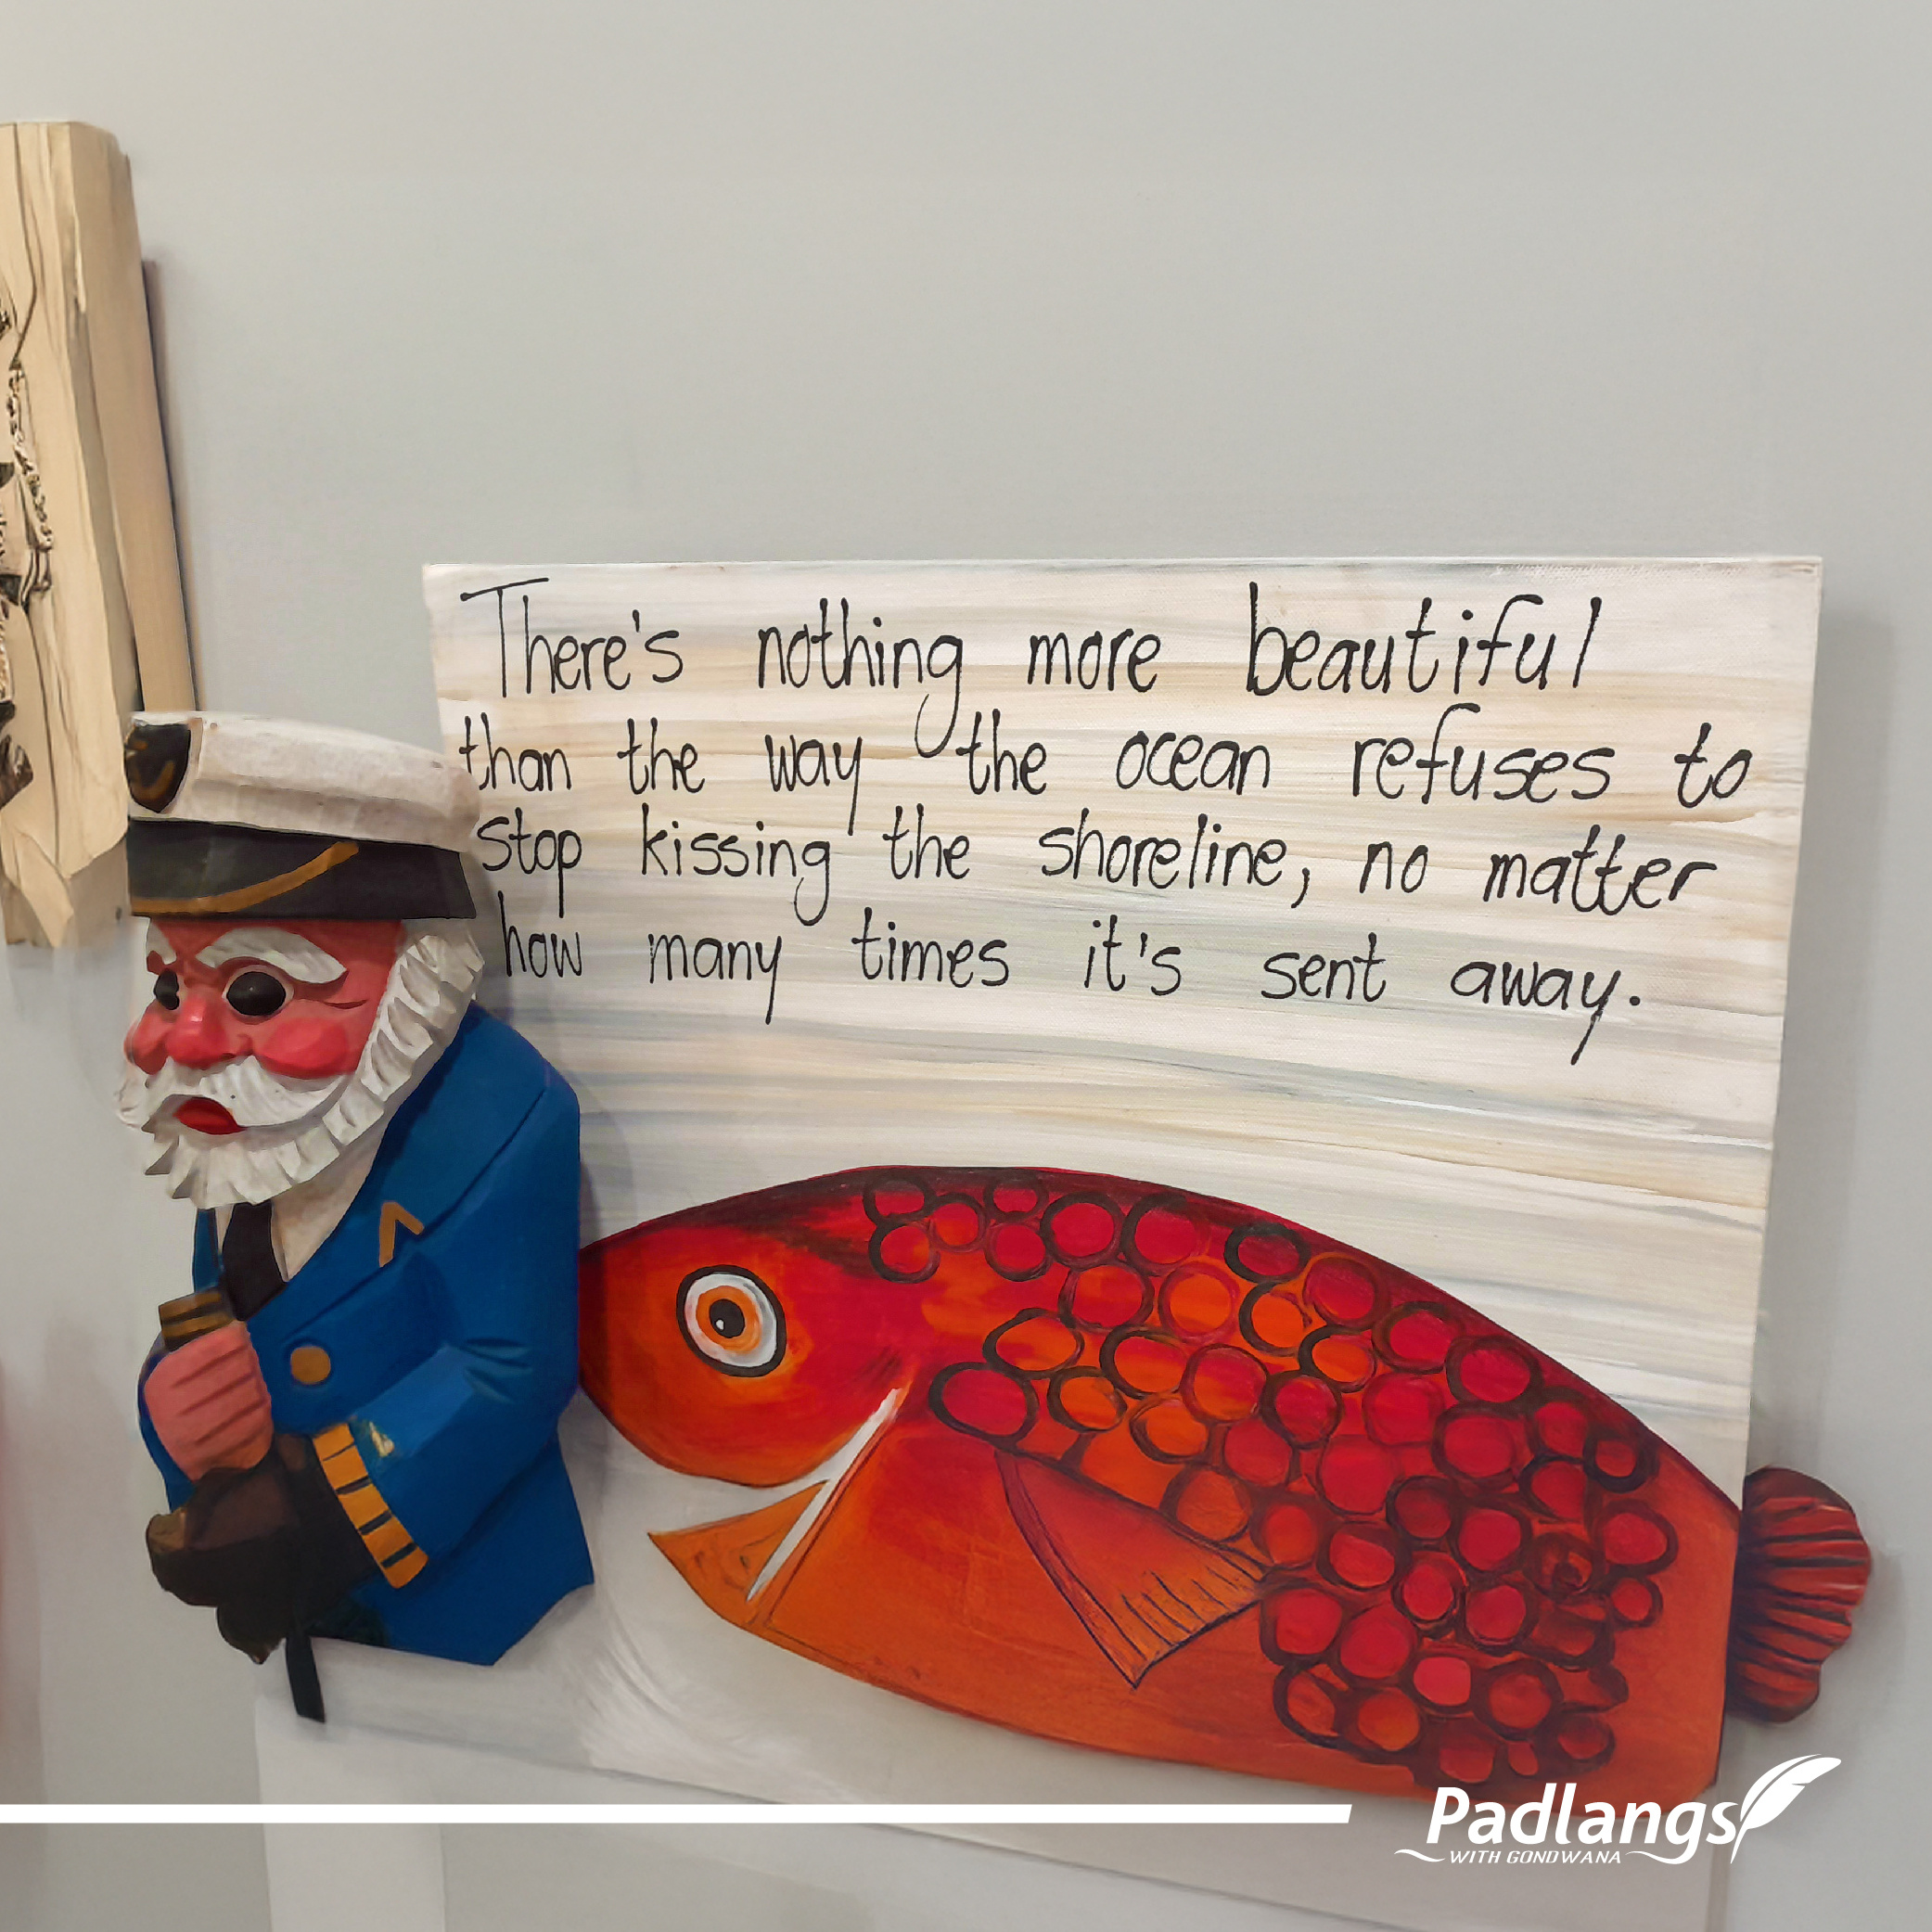 There's nothing more beautiful
than the way the ocean refuses to
stop kissing the shoreline, no matter
how many times it's sent away.
Padlangs
WITH GONDWANA